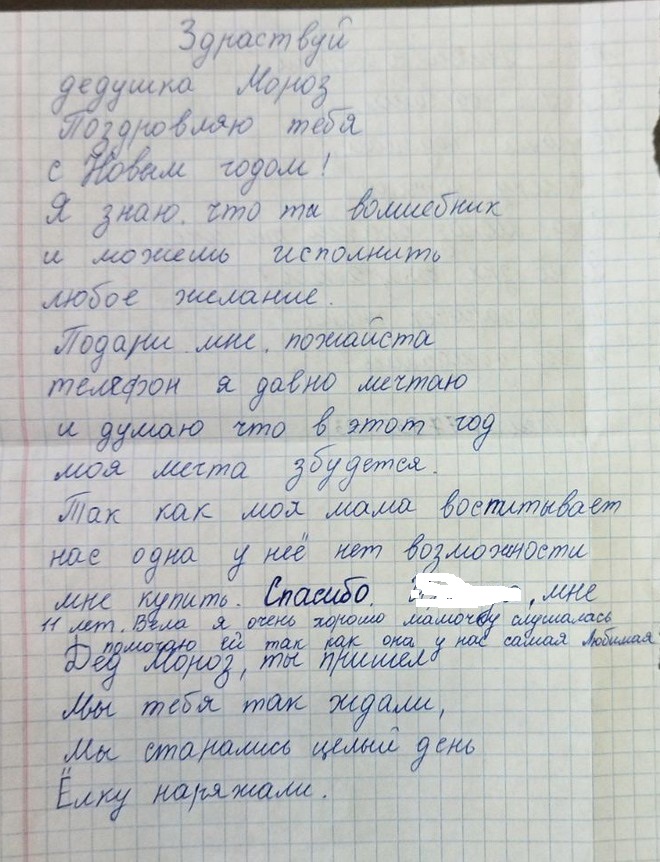 Здраствуй
дедушка Мороз
Поздровляю тебя
с Новым годом!
Я знаю. что ты волшебник
и можешь исполнить
любое желание.
Подари мне. пожайста
телефон я давно мечтаю
и думаю что в этот год
моя мечта збудется.
Так как моя мама воспитывает
нас одна у неё нет возможности
мне купить. Спасибо. , мне
11 лет. Вела я очень хорошо мамочку слушалась
помогаю ей так как она у нас самая любимая
Дед Мороз, ты пришел
Мы тебя так ждали,
Мы старались целый день
Ёлку наряжали.